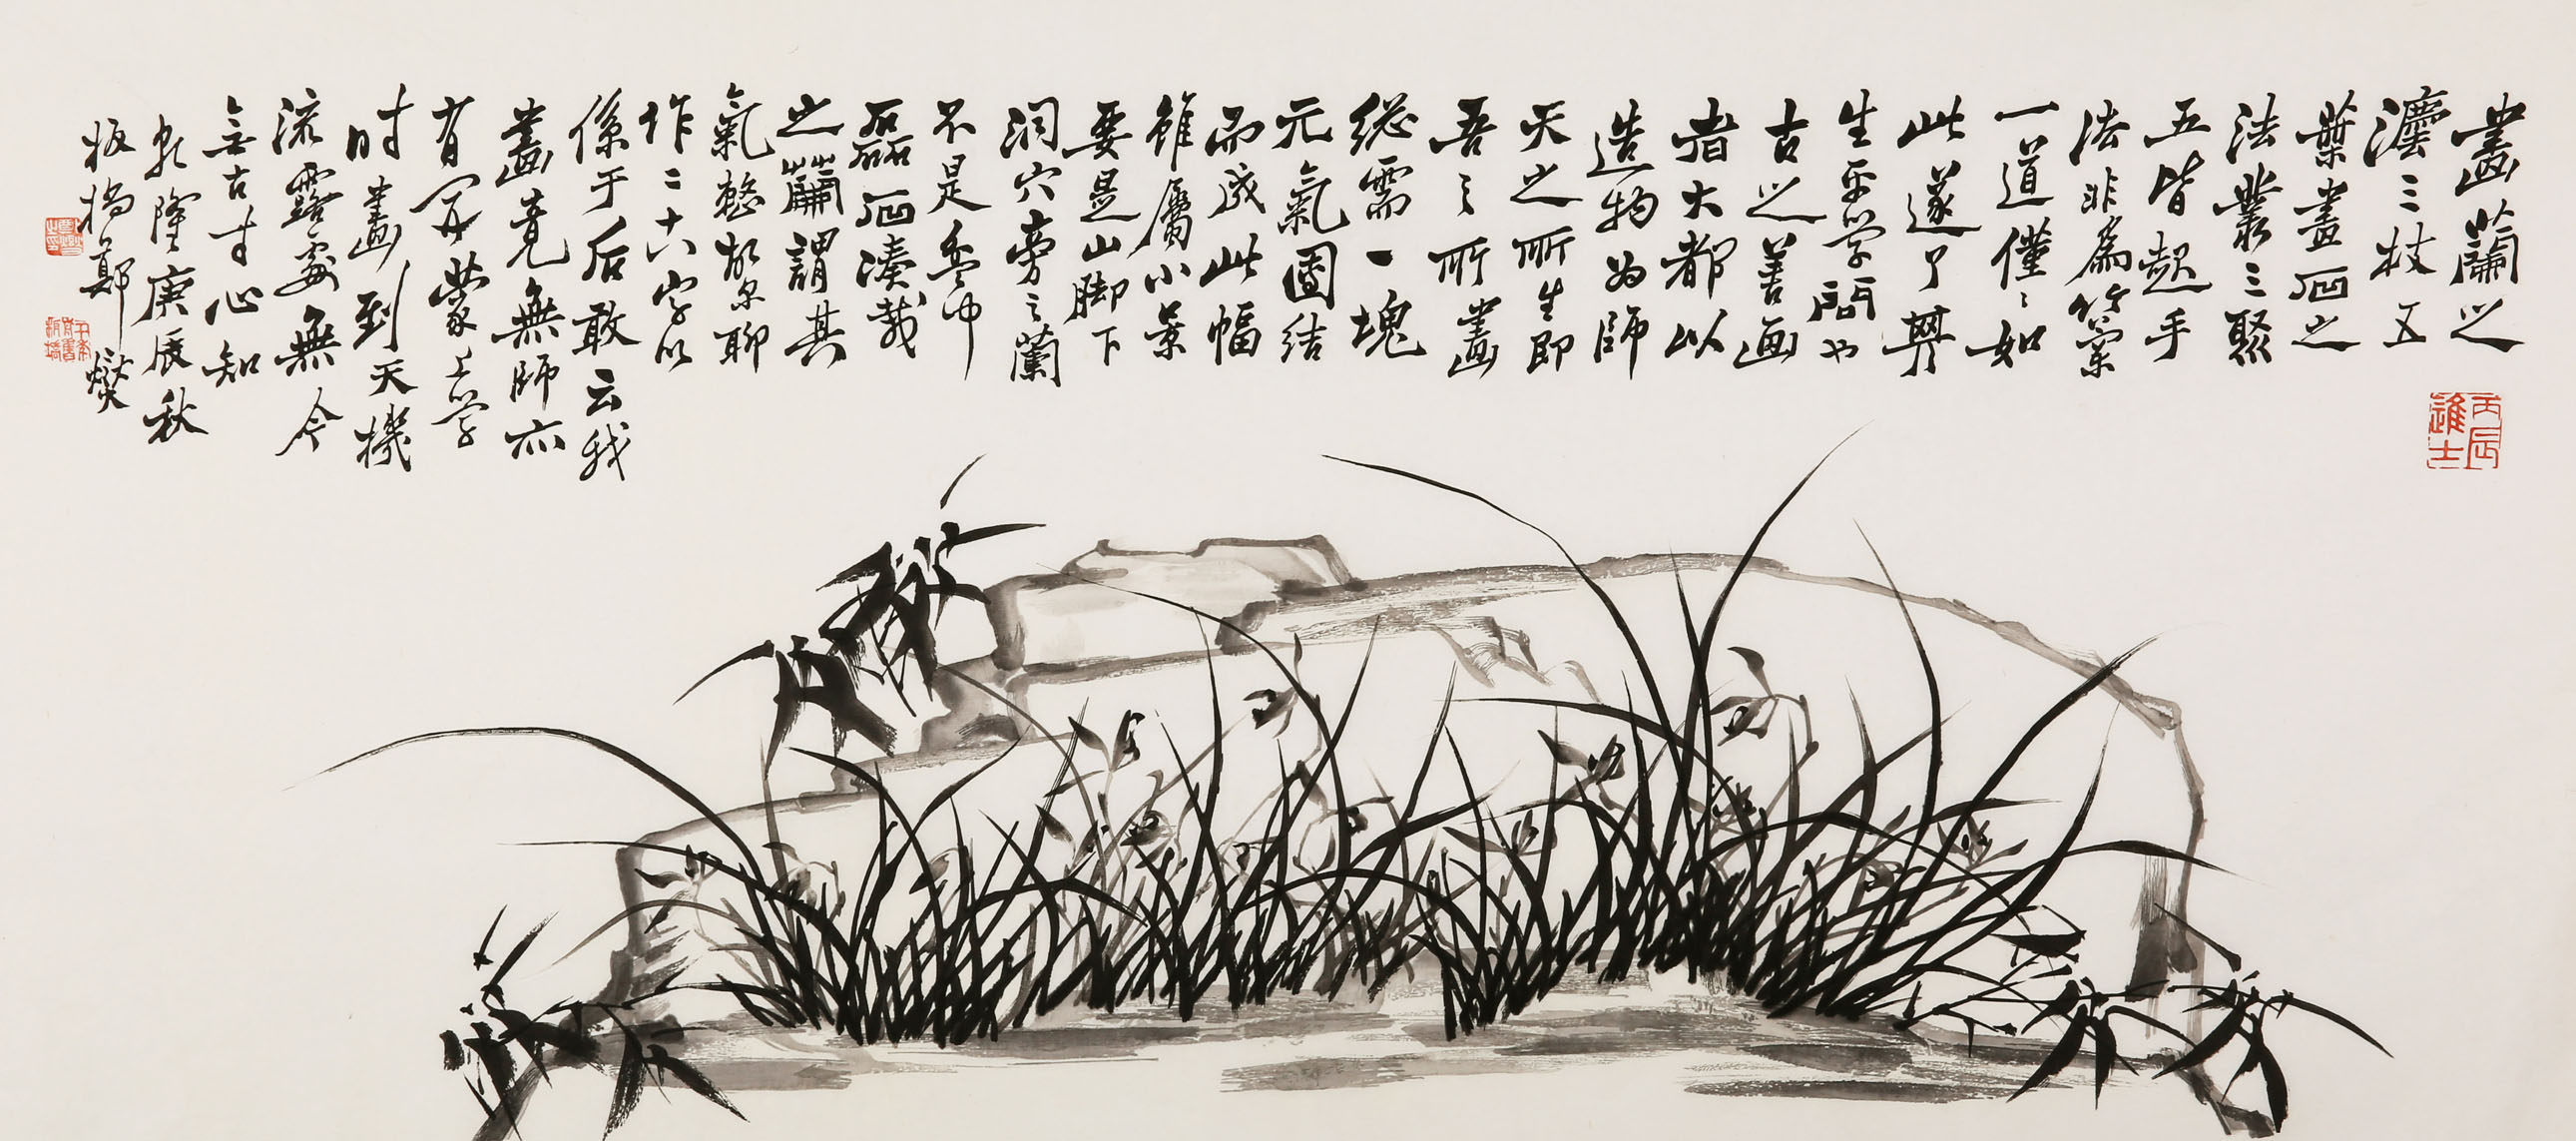 畫蘭之
灋三枝五
葉畫石之
法叢三聚
五皆起手
法非為
一道僅僅如
此遂了其
生平学問也
古之善画
者大都以
造物为師
天之所生即
吾之所畫
総需一塊
元氣團結
而成此幅
雖屬小景
要是山脚下
洞穴旁之蘭
不是盆中
磊石湊栽
之蘭謂其
氣整故尔聊
作二十八字以
係于后敢云我
畫竟無師亦
有开蒙上学
时畫到天機
流露處無今
無古寸心知
乾隆庚辰秋
板橋鄭燮
丙辰進士